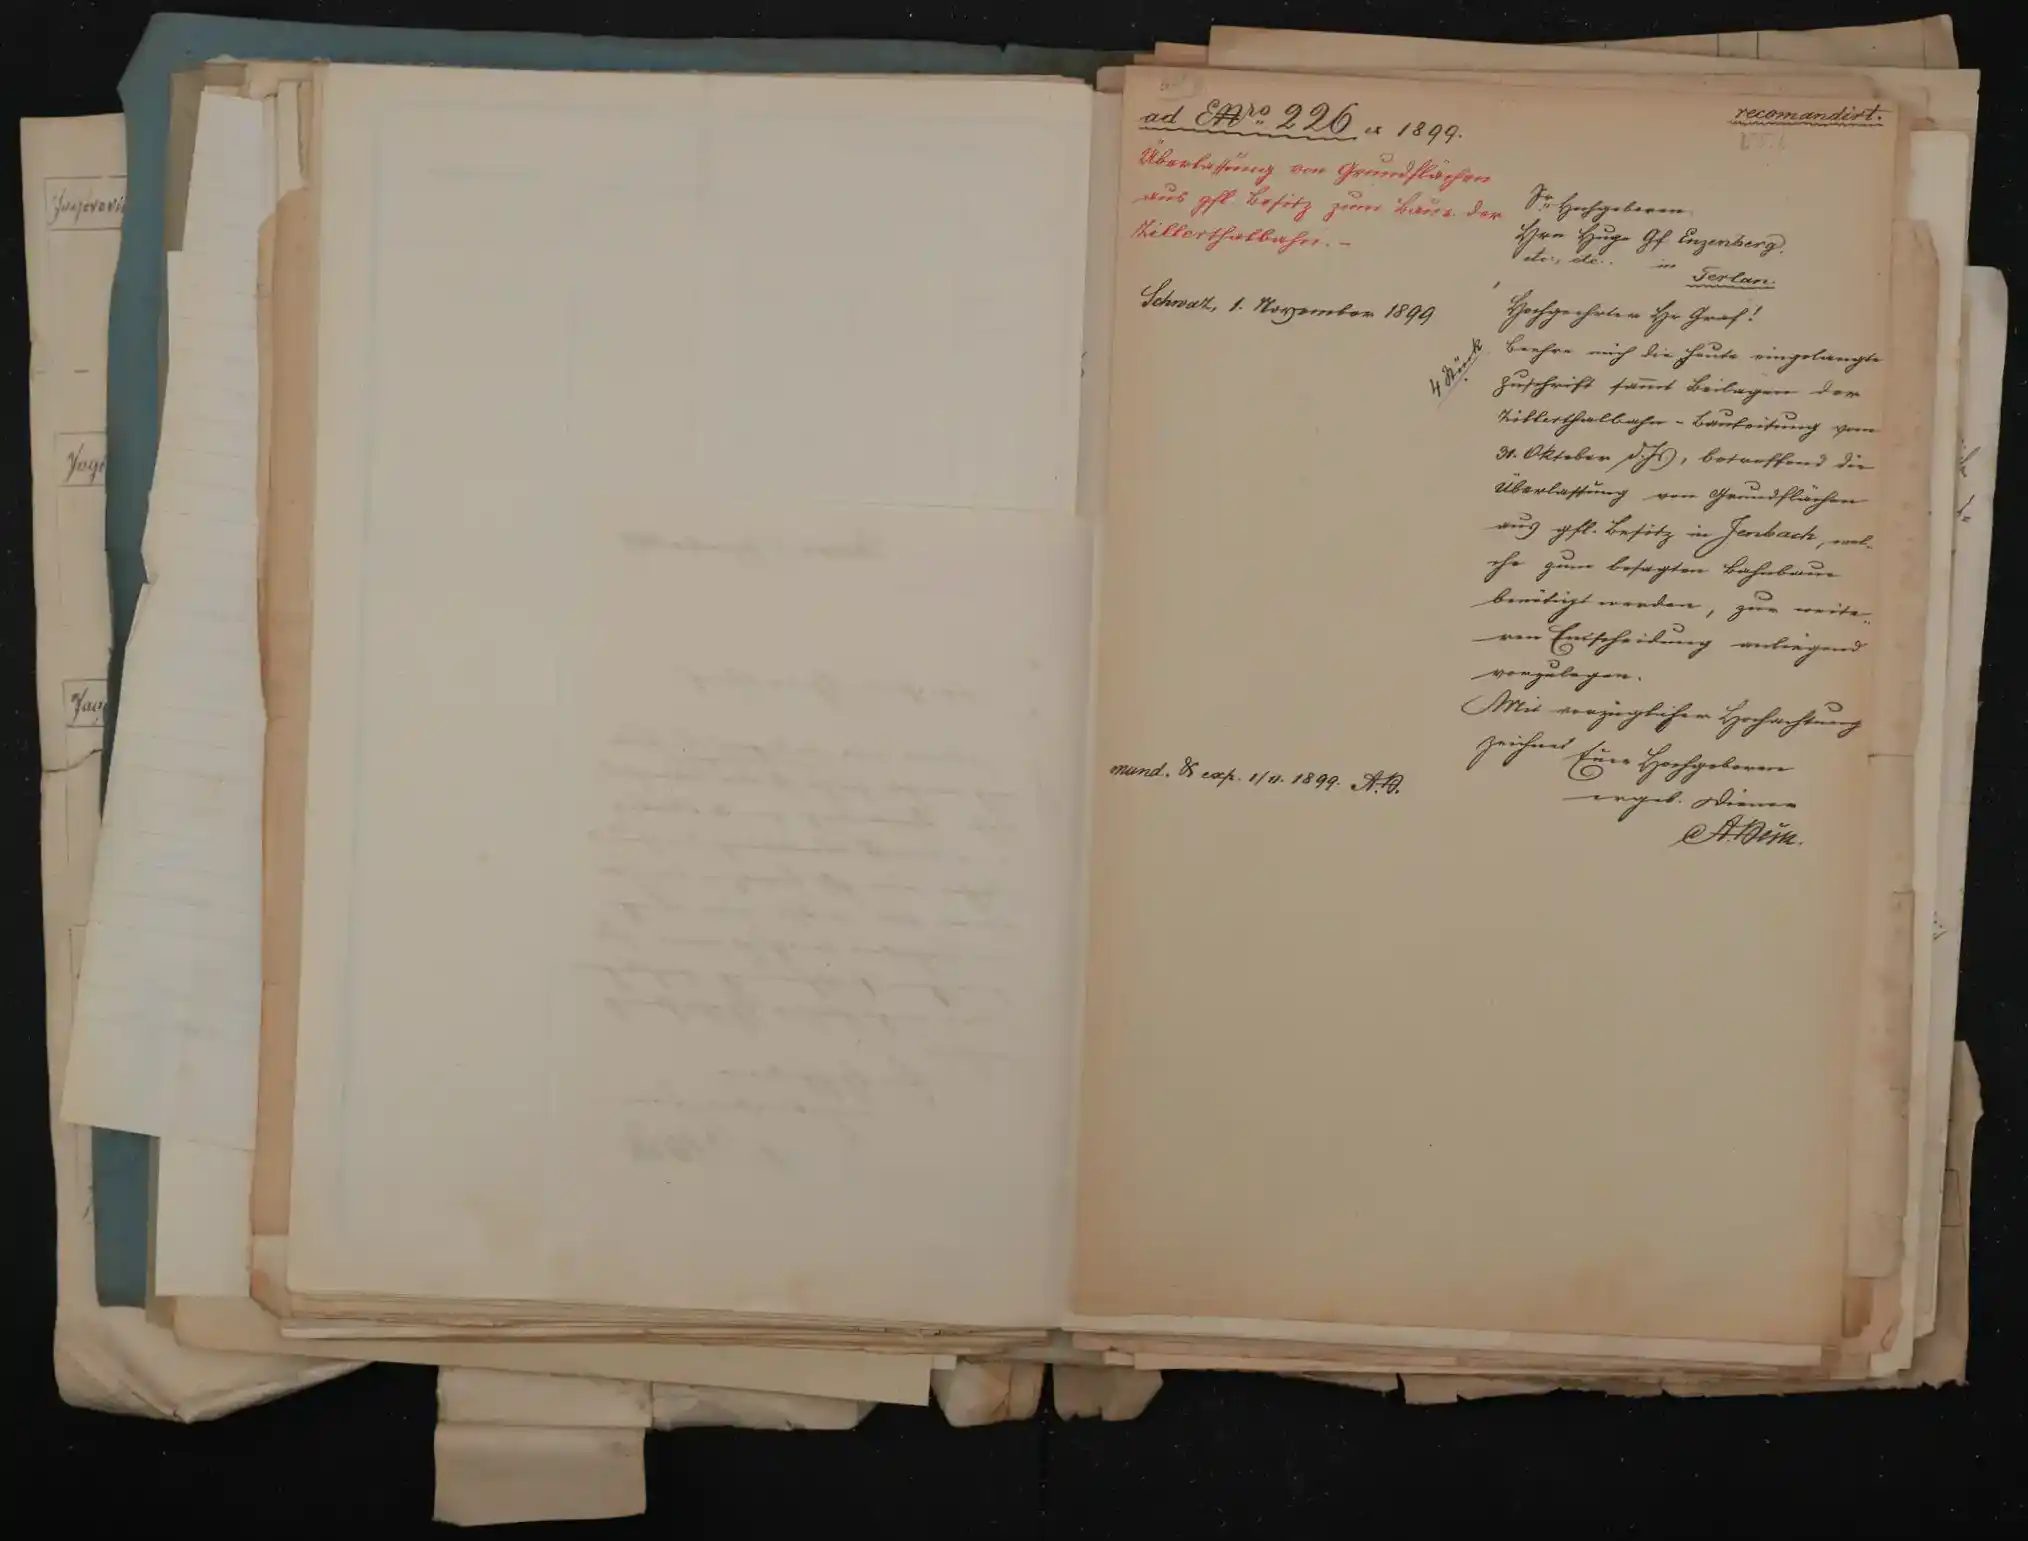 ad ENro 226 ex 1899.
recomandirt.
Überlassung von Grundflächen
aus gfl. Besitz zum Baue der
Zillerthalbahn. –
Schwaz, 1. November 1899
Sr Hochgeboren
Hrn Hugo Gf Enzenberg.
etc., etc.. in
Terlan.
Hochgeehrter Hr Graf!
4 Stück
Beehre mich die heute eingelangte
Zuschrift sammt Beilagen der
Zillerthalbahn-Bauleitung vom
31. Oktober d. Js, betreffend die
Überlassung von Grundflächen
aus gfl. Besitz in Jenbach, wel-
che zum besagten Bahnbaue
benötigt werden, zur weite-
ren Entscheidung anliegend
vorzulegen.
Mit vorzüglicher Hochachtung
zeichnet
Euer Hochgeboren
ergeb. Diener
mund. & exp. 1/11. 1899.